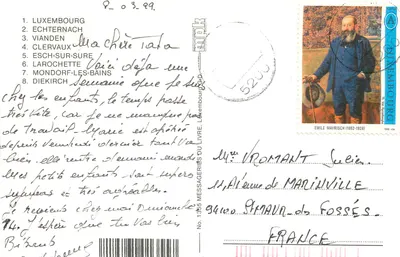 8-03.99.
1. LUXEMBOURG
2. ECHTERNACH
3. VIANDEN
4. CLERVAUX
5. ESCH-SUR-SURE
6. LAROCHETTE
7. MONDORF-LES-BAINS
8. DIEKIRCH
Ma chère Tata
Voici déjà une
semaine que je suis
chez les enfants, le temps passe
très vite, car je ne manque pas
de travail. Marie est opérée
depuis vendredi dernier tout va
bien, elle rentre demain
Les petits enfants sont supers
et très agréables.
Je reviens chez moi Dimanche
14. J'espère que tu vas bien
Bisous
MESSAGERIES DU LIVRE, Luxembourg
5200
EMILE MAYRISCH (1862-1928)
Mme VROMANT Lucien
11, Av. de MARINVILLE
94100 ST MAUR-des FOSSÉS.
FRANCE